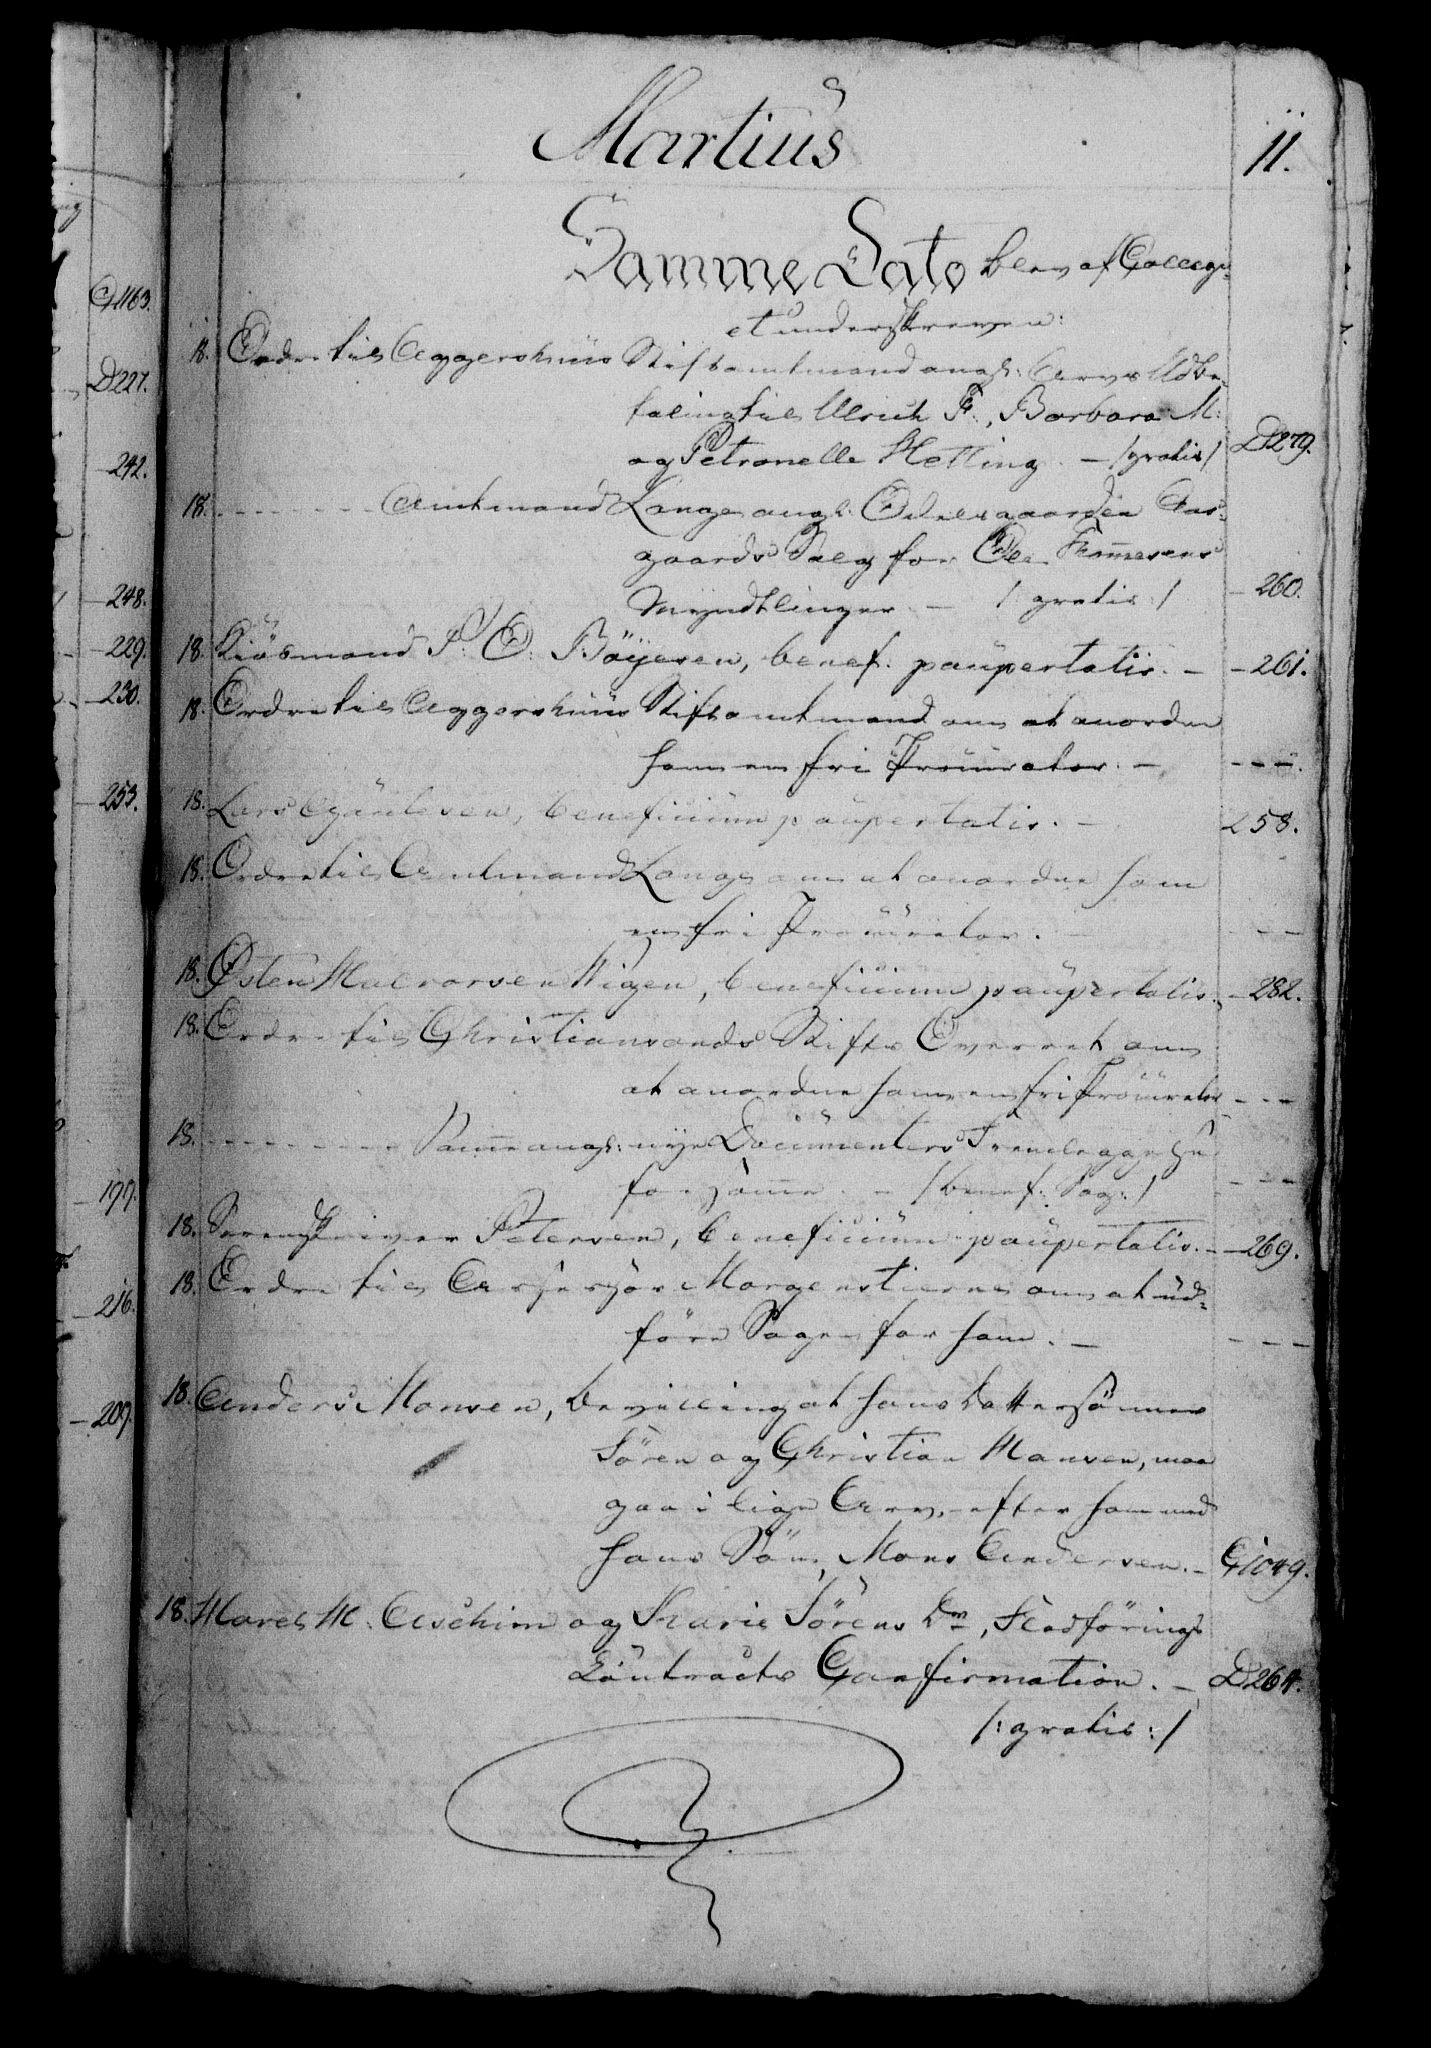 Martius
11.
Samme Dato blev af Collegi-
et underskreven:
18. Ordre til Aggershuus Stiftamtmand angl: Arve Udbe-
taling til Ulrich F., Barbara M:
og Petronelle Hetting. — /gratis/ D279.
18. - - - - - - - Amtmand Lange angl: Odelsgaarden Aas-
gaards Salg for Ole Tommesens
Myndtlinger — /: gratis :/ — 260.
18. Kiøbmand P: O: Böyesen, benef: paupertatis. — — 261.
18. Ordre til Aggershuus Stiftamtmand om at anordne
ham en fri Procurator. — - - -.
18. Lars Gunlesen, beneficium paupertatis. — 258.
18. Ordre til Amtmand Lange om at anordne ham
en fri Procurator. - - -
18. Østen Halvorsen Wigen, beneficium paupertatis. — 282.
18. Ordre til Christiansands Stifts Overret om
at anordne ham en fri Procurator - - -
18. - - - - - - - Samme angl: nye Documenters Fremlæggelse
for samme. — /benef: Sag:/ - - -
18. Sorenskriver Petersen, beneficium paupertatis. — — 269.
18. Ordre til Assessor Morgenstierne om at ud-
føre Sagen for ham. — - - -
18. Anders Monsen, bevilling at hans Dattersønner
Sören og Christian Hansen, maa
gaa i lige Arv, efter ham med
hans Søn, Mons Andersen. — G1049.
18. Marel M. Aschim og Marie Sörens Dr, Fledførings
Contracts Confirmation. — D264.
/: gratis :/
G1163.
D227.
— 242.
— 248.
— 229.
— 230.
— 253.
— 197.
— 216.
— 209.